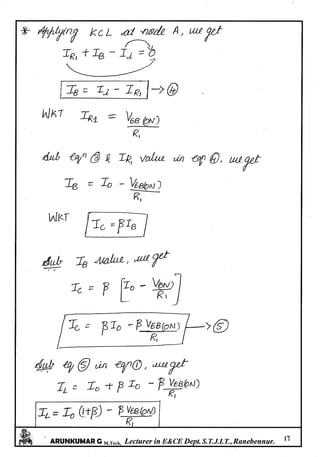 * Applying KCL at node A, we get
I_R1 + I_B - I_i = 0
I_B = I_i - I_R1 → ④
WKT I_R1 = V_EB(ON) / R_1
Sub eqn ③ & I_R1 value in eqn ④, we get
I_B = I_0 - V_EB(ON) / R_1
WKT I_C = β I_B
Sub I_B value, we get
I_C = β [ I_0 - V(ON) / R_1 ]
I_C = β I_0 - β V_EB(ON) / R_1 → ⑤
Sub eq ⑤ in eqn ①, we get
I_L = I_0 + β I_0 - β V_EB(ON) / R_1
I_L = I_0 (1+β) - β V_EB(ON) / R_1
ARUNKUMAR G M.Tech, Lecturer in E&CE Dept. S.T.J.I.T., Ranebennur. 17